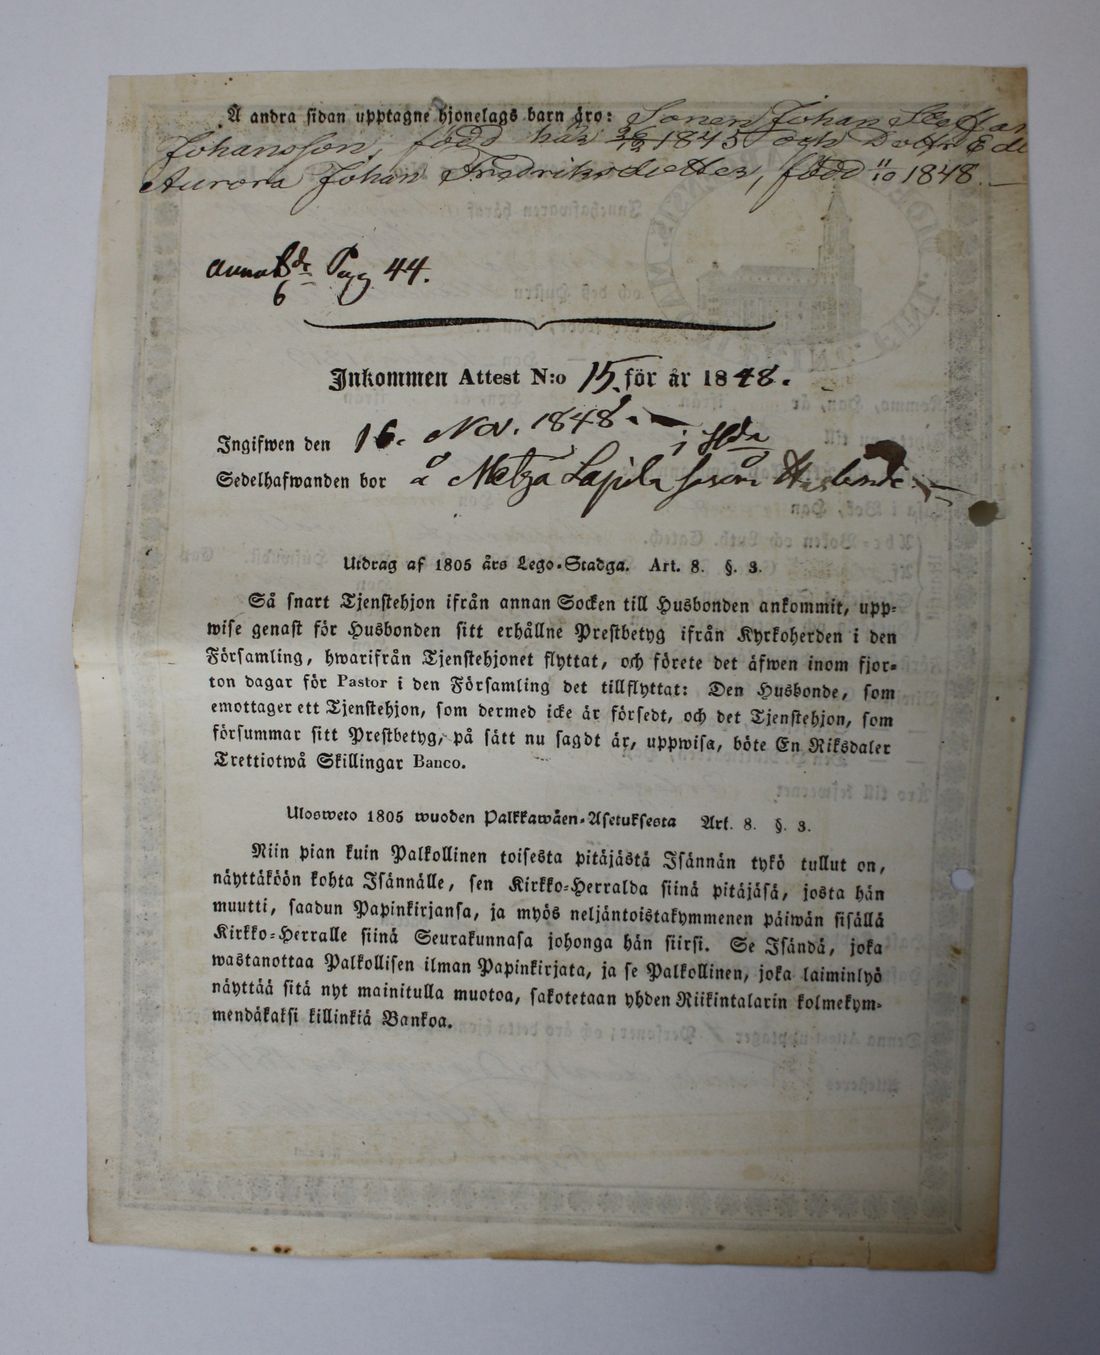 Å andra sidan upptagne hjonelags barn äro: Sonen Johan
Johansson, född här 26/12 1845 och Dottr
Aurora Johan Fredriksdotter, född 11/10 1848.
Pag 44.
6
Inkommen Attest N:o 15 för år 1848.
Ingifwen den 16. Nov. 1848. i
Sedelhafwanden bor å såsom
Utdrag af 1805 års Lego-Stadga. Art. 8. §. 3.
Så snart Tjenstehjon ifrån annan Socken till Husbonden ankommit, upp-
wise genast för Husbonden sitt erhållne Prestbetyg ifrån Kyrkoherden i den
Församling, hwarifrån Tjenstehjonet flyttat, och förete det äfwen inom fjor-
ton dagar för Pastor i den Församling det tillflyttat: Den Husbonde, som
emottager ett Tjenstehjon, som dermed icke är försedt, och det Tjenstehjon, som
försummar sitt Prestbetyg, på sätt nu sagdt är, uppwisa, böte En Riksdaler
Trettiotwå Skillingar Banco.
Ulosweto 1805 wuoden Palkkawäen-Asetuksesta Art. 8. §. 3.
Niin pian kuin Palkollinen toisesta pitäjästä Isännän tykö tullut on,
näyttäköön kohta Isännälle, sen Kirkko-Herralda siinä pitäjäsä, josta hän
muutti, saadun Papinkirjansa, ja myös neljäntoistakymmenen päiwän sisällä
Kirkko-Herralle siinä Seurakunnasa johonga hän siirsi. Se Isändä, joka
wastanottaa Palkollisen ilman Papinkirjata, ja se Palkollinen, joka laiminlyö
näyttää sitä nyt mainitulla muotoa, sakotetaan yhden Riikintalarin kolmekym-
mendäkaksi killinkiä Bankoa.